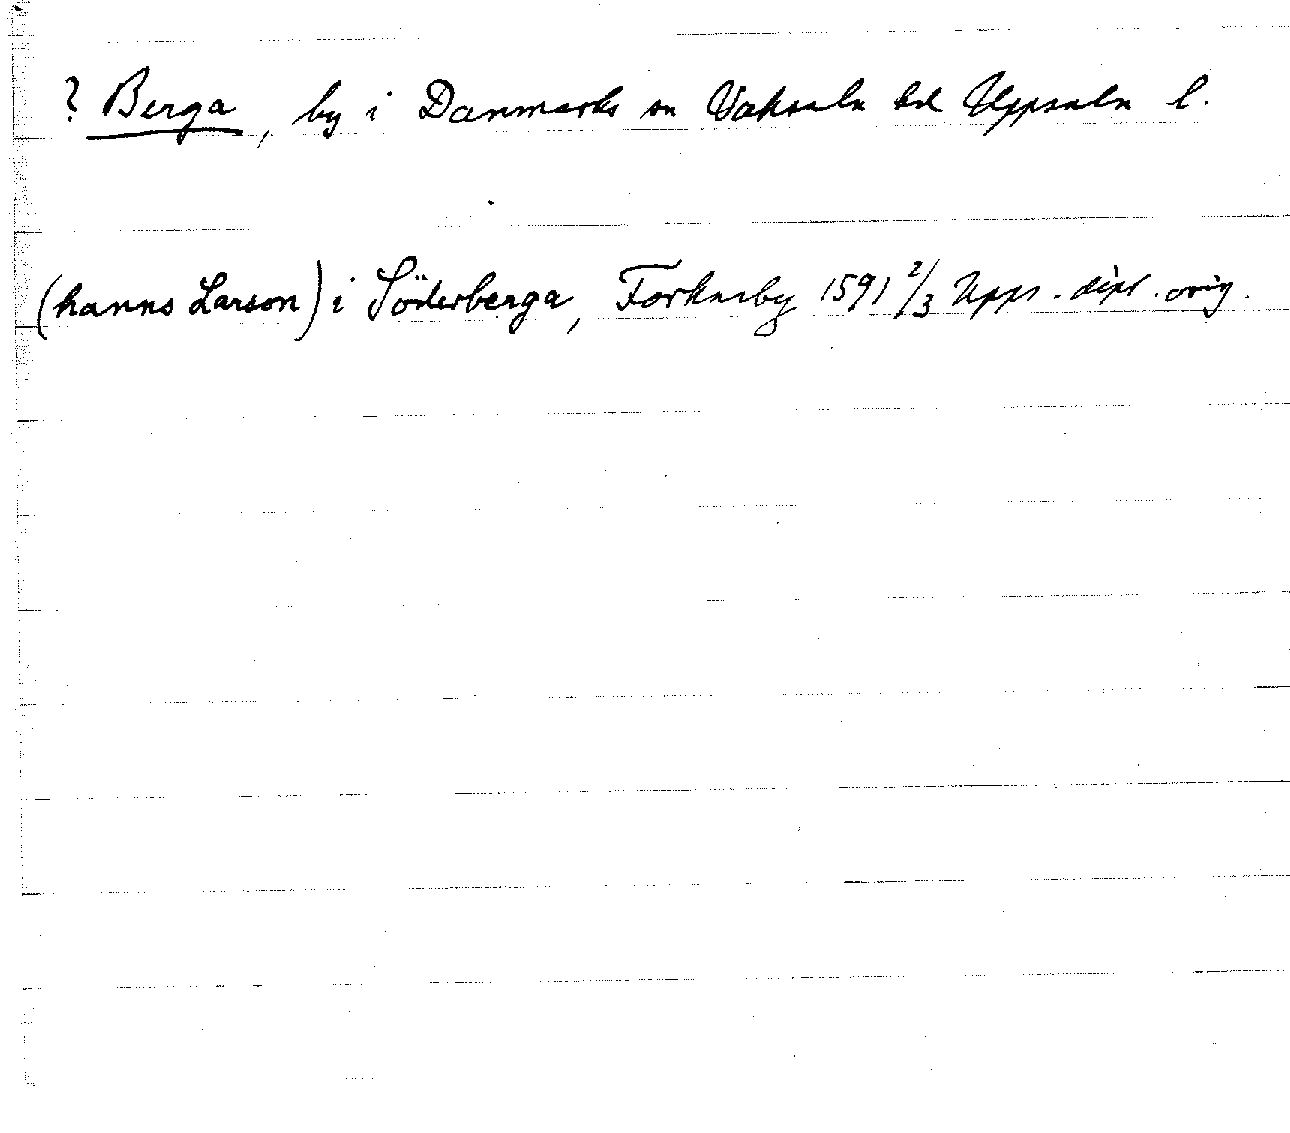 ? Berga, by i Danmarks sn Vaksala hd Uppsala l.
(hanns Larson) i Söderberga, Forkarby 1591 2/3 Upps. dipl. orig.